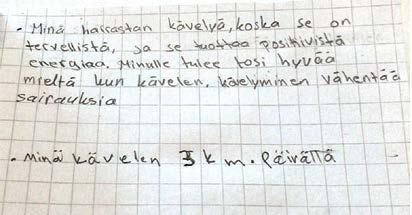 - Minä harrastan kävelyä, koska se on
tervellistä, ja se tuottaa positivistä
energiaa. Minulle tulee tosi hyvää
mieltä kun kävelen, kävelyminen vähentää
sairauksia
- Minä kävelen 3 km. Päivällä